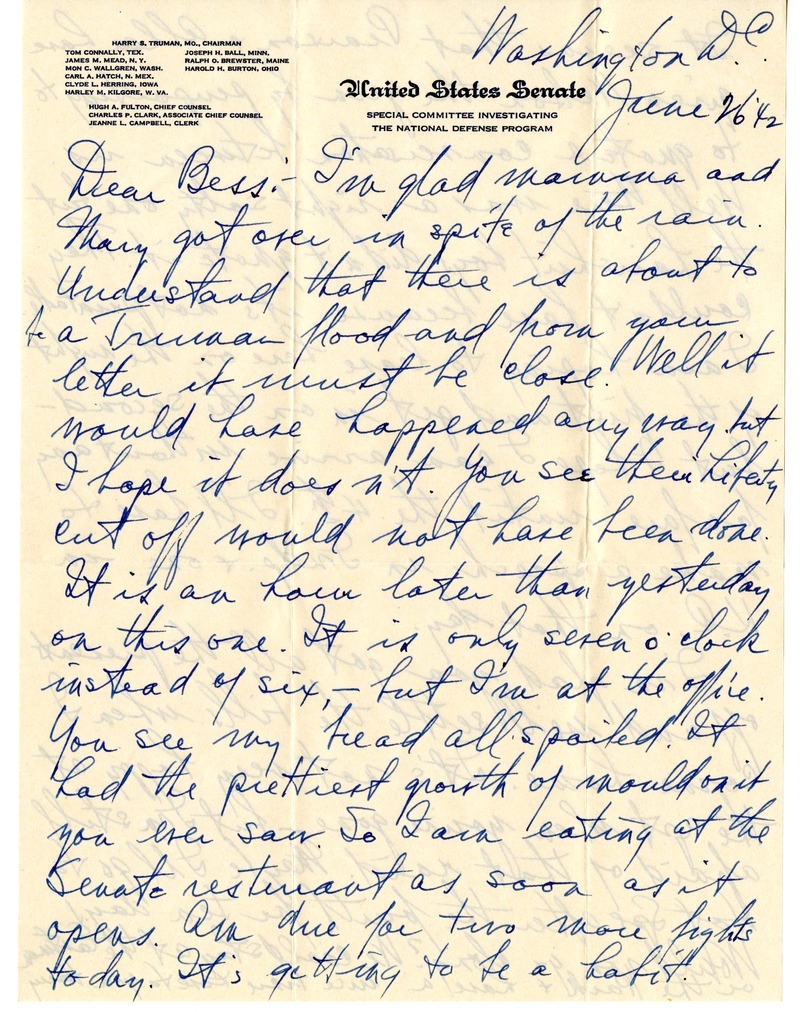 HARRY S. TRUMAN, MO., CHAIRMAN
TOM CONNALLY, TEX. JOSEPH H. BALL, MINN.
JAMES M. MEAD, N. Y. RALPH O. BREWSTER, MAINE
MON C. WALLGREN, WASH. HAROLD H. BURTON, OHIO
CARL A. HATCH, N. MEX.
CLYDE L. HERRING, IOWA
HARLEY M. KILGORE, W. VA.
HUGH A. FULTON, CHIEF COUNSEL
CHARLES P. CLARK, ASSOCIATE CHIEF COUNSEL
JEANNE L. CAMPBELL, CLERK
Washington D.C.
United States Senate
June 26 '42
SPECIAL COMMITTEE INVESTIGATING
THE NATIONAL DEFENSE PROGRAM
Dear Bess:- I'm glad mamma and
Mary got over in spite of the rain.
Understand that there is about to
be a Truman flood and from your
letter it must be close. Well it
would have happened any way but
I hope it does n't. You see then Liberty
cut off would not have been done.
It is an hour later than yesterday
on this one. It is only seven o'clock
instead of six, - but I'm at the office.
You see my bread all spoiled. It
had the prettiest growth of mould on it
you ever saw. So I am eating at the
Senate resturant as soon as it
opens. Am due for two more fights
today. It's getting to be a habit.